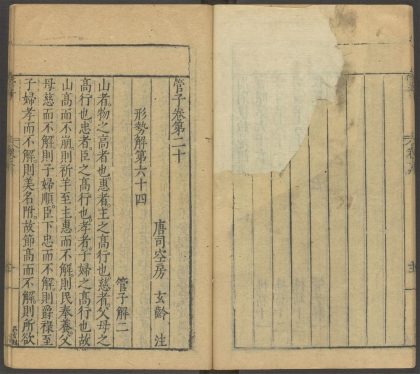 管子卷第二十
唐司空房 玄齡 注
形勢解第六十四
管子解二
山者物之高者也惠者主之高行也慈者父母之
高行也忠者臣之高行也孝者子婦之高行也故
山高而不崩則祈羊至主惠而不解則民奉養父
母慈而不解則子婦順臣下忠而不解則爵祿至
子婦孝而不解則美名附故節高而不解則所欲